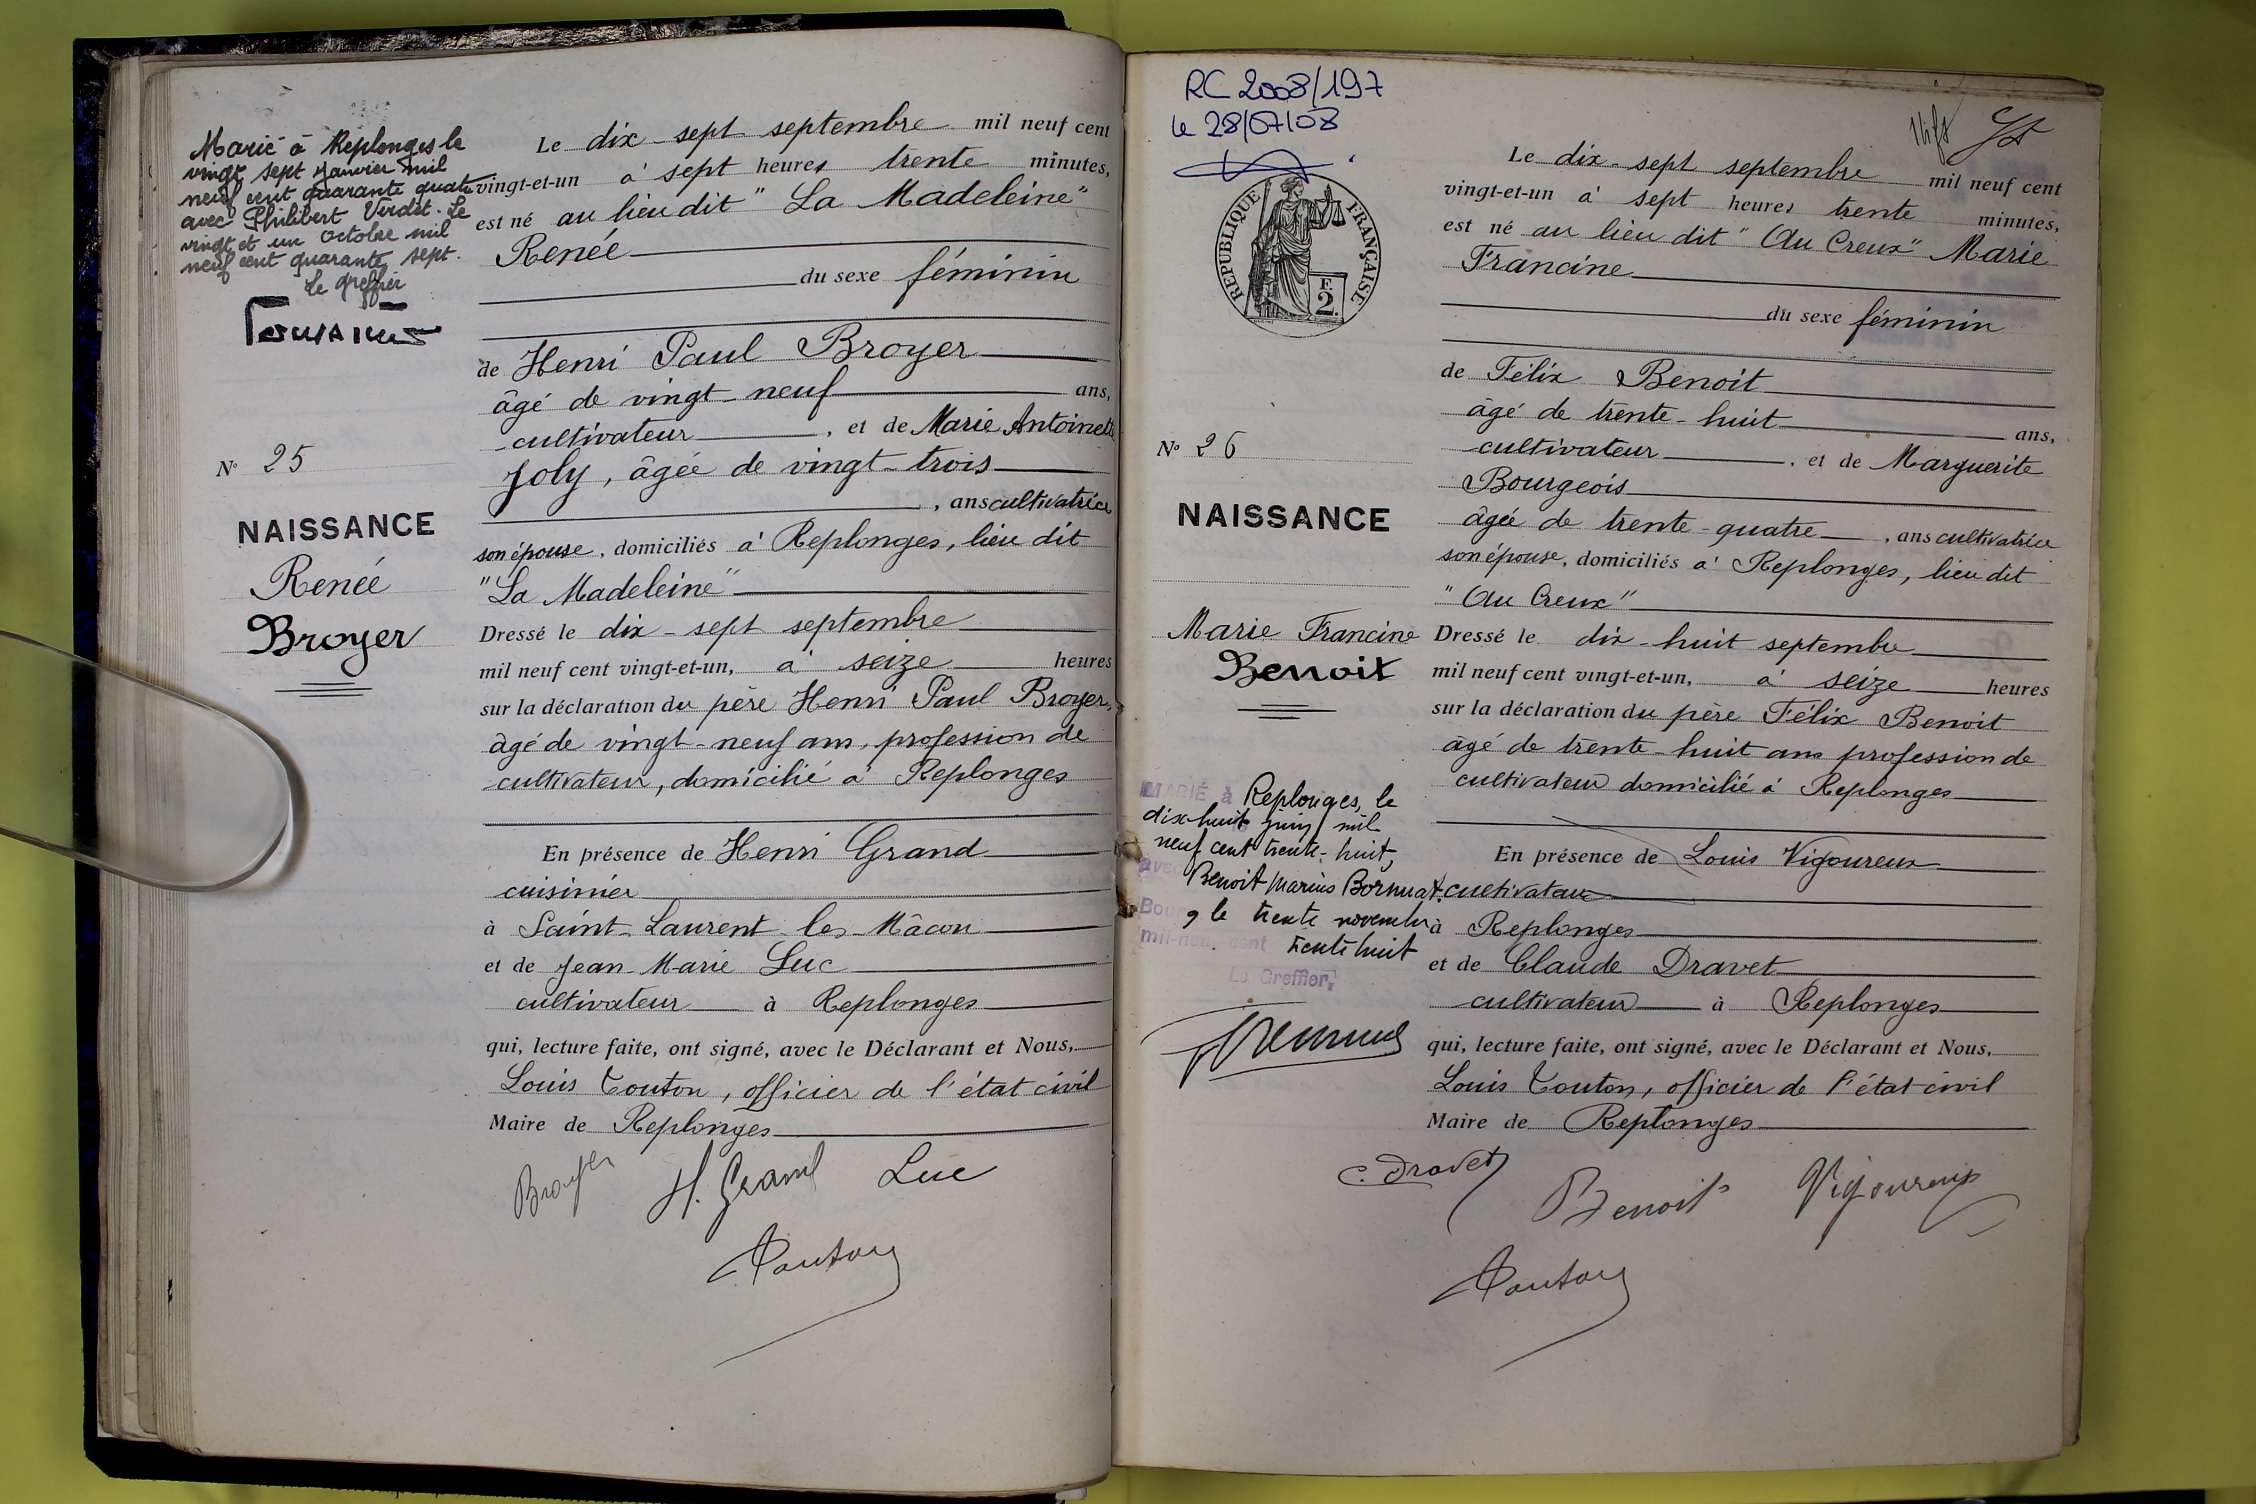 Marié à Replonges le
vingt sept Janvier mil
neuf cent quarante quatre
avec Philibert Verdet. Le
vingt et un Octobre mil
neuf cent quarante sept.
Le greffier
N° 25
NAISSANCE
Renée
Broyer
Le dix-sept septembre mil neuf cent
vingt-et-un à sept heures trente minutes,
est né au lieu dit "La Madeleine"
Renée
du sexe féminin
de Henri Paul Broyer
âgé de vingt-neuf ans,
cultivateur, et de Marie Antoinette
Joly, âgée de vingt-trois
, ans cultivatrice
son épouse, domiciliés à Replonges, lieu dit
"La Madeleine"
Dressé le dix-sept septembre
mil neuf cent vingt-et-un, à seize heures
sur la déclaration du père Henri Paul Broyer,
âgé de vingt-neuf ans, profession de
cultivateur, domicilié à Replonges
En présence de Henri Grand
cuisinier
à Saint-Laurent-les-Mâcon
et de Jean-Marie Luc
cultivateur à Replonges
qui, lecture faite, ont signé, avec le Déclarant et Nous,
Louis Touton, officier de l'état civil
Maire de Replonges
Broyer H. Grand Luc
Touton
RC 2008/197
le 28/07/08
REPUBLIQUE FRANÇAISE
F.
2.
N° 26
NAISSANCE
Marie Francine
Benoit
MARIÉ à Replonges, le
dix-huit juin mil
neuf cent trente-huit,
avec Benoit Marius Bornuat.
Bourg, le trente novembre
mil-neuf cent trente huit
Le Greffier,
Le dix-sept septembre mil neuf cent
vingt-et-un à sept heures trente minutes,
est né au lieu dit "Au Creux" Marie
Francine
du sexe féminin
de Félix Benoit
âgé de trente-huit ans,
cultivateur, et de Marguerite
Bourgeois
âgée de trente-quatre, ans cultivatrice
son épouse, domiciliés à Replonges, lieu dit
"Au Creux"
Dressé le dix-huit septembre
mil neuf cent vingt-et-un, à seize heures
sur la déclaration du père Félix Benoit
âgé de trente-huit ans profession de
cultivateur domicilié à Replonges
En présence de Louis Vigoureux
cultivateur
à Replonges
et de Claude Dravet
cultivateur à Replonges
qui, lecture faite, ont signé, avec le Déclarant et Nous,
Louis Touton, officier de l'état civil
Maire de Replonges
C. Dravet Benoit Vigoureux
Touton